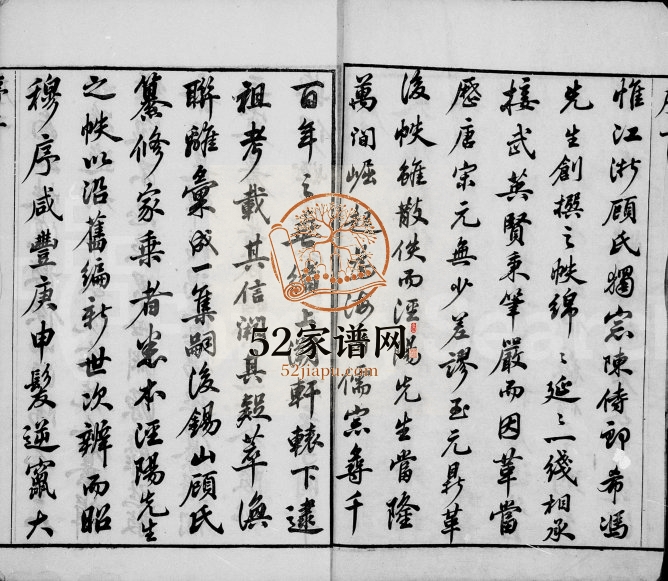 惟江浙顧氏獨宗陳侍郎希馮
先生創撰之帙綿〻延〻一綫相承
接武英賢秉筆嚴而因革當
歷唐宋元無少差謬至元鼎革
後帙雖散佚而涇陽先生當隆
萬間崛起為海儒宗尋千
百年之上軒轅下逮
祖考載其信溯其疑萃渙
聯離彙成一集嗣後錫山顧氏
纂修家乘者悉本涇陽先生
之帙以沿舊編新世次辨而昭
穆序咸豐庚申髮逆竄大
52家谱网
52jiapu.com